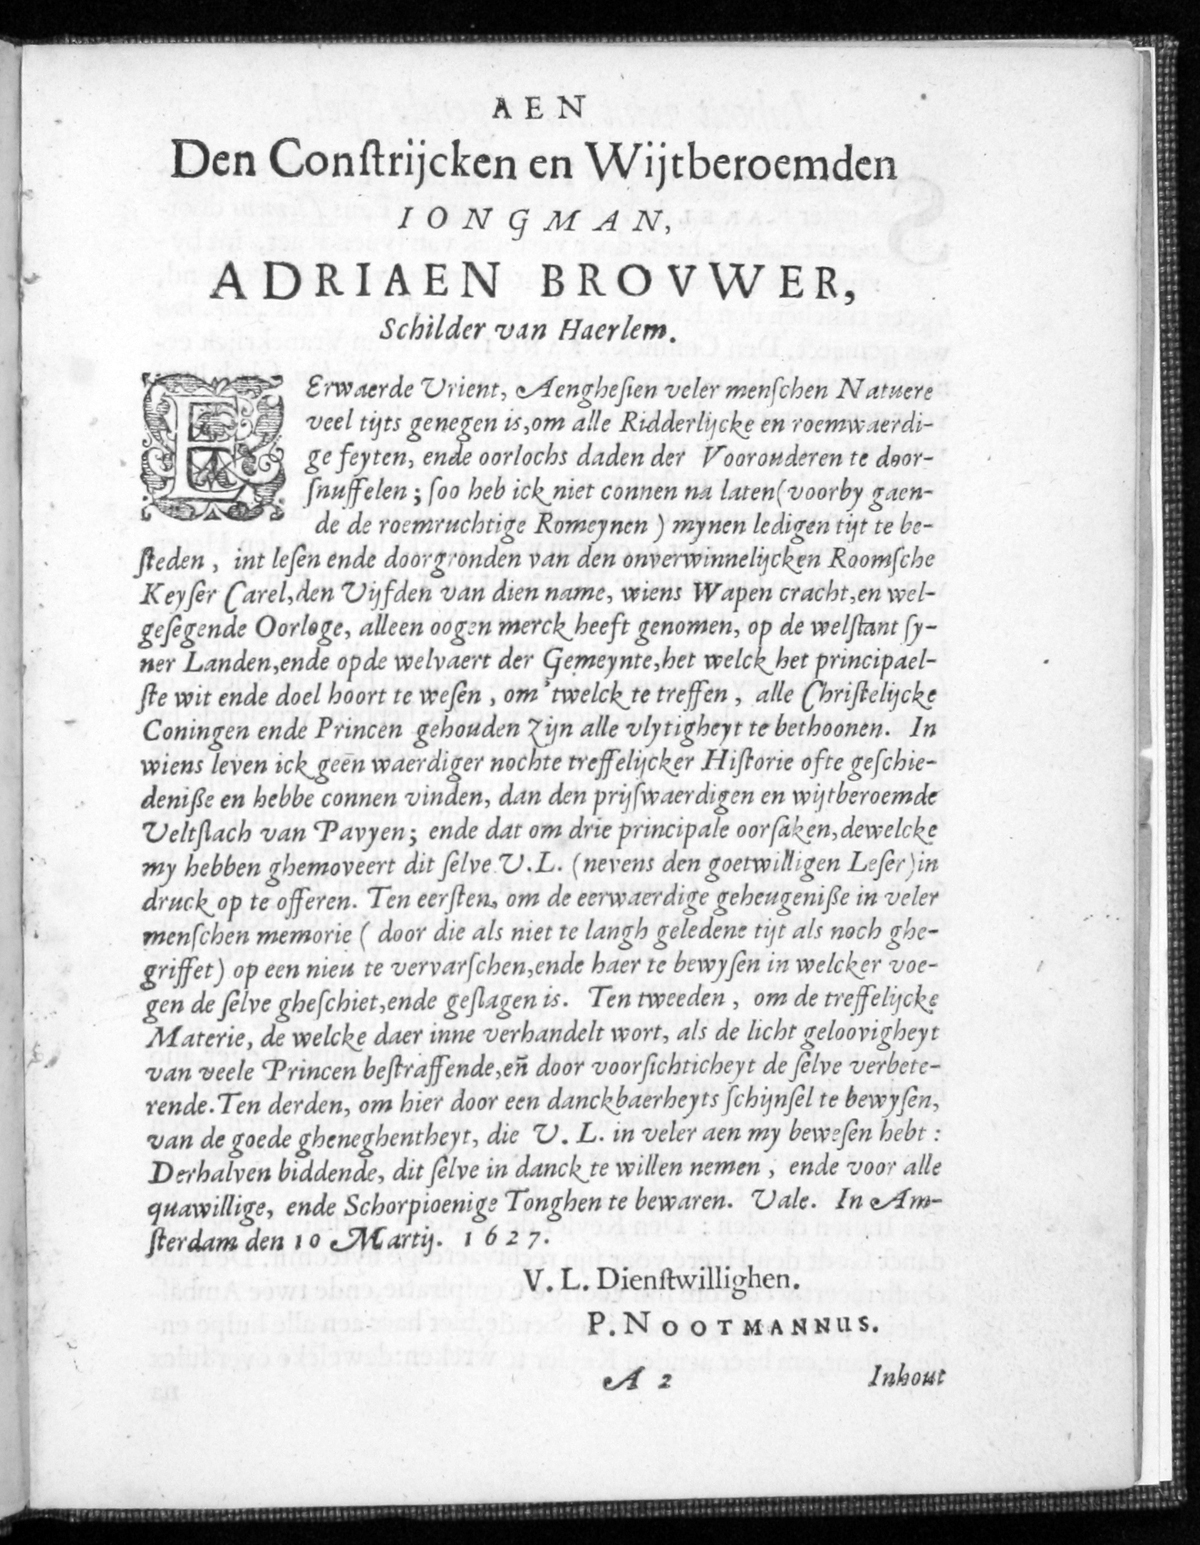 AEN
Den Conſtrijcken en Wijtberoemden
IONGMAN,
ADRIAEN BROVWER,
Schilder van Haerlem.
EErwaerde Vrient, Aengheſien veler menſchen Natuere
veel tijts genegen is,om alle Ridderlijcke en roemwaerdi-
ge feyten, ende oorlochs daden der Voorouderen te door-
ſnuffelen; ſoo heb ick niet connen na laten(voorby gaen-
de de roemruchtige Romeynen) mynen ledigen tijt te be-
ſteden, int leſen ende doorgronden van den onverwinnelijcken Roomſche
Keyſer Carel,den Vijfden van dien name, wiens Wapen cracht,en wel-
geſegende Oorloge, alleen oogen merck heeft genomen, op de welſtant ſy-
ner Landen,ende op de welvaert der Gemeynte,het welck het principael-
ſte wit ende doel hoort te weſen, om 'twelck te treffen, alle Chriſtelijcke
Coningen ende Princen gehouden zijn alle vlytigheyt te bethoonen. In
wiens leven ick geēn waerdiger nochte treffelijcker Hiſtorie ofte geſchie-
deniße en hebbe connen vinden, dan den prijſwaerdigen en wijtberoemde
Veltſlach van Pavyen; ende dat om drie principale oorſaken,dewelcke
my hebben ghemoveert dit ſelve V.L. (nevens den goetwilligen Leſer)in
druck op te offeren. Ten eerſten, om de eerwaerdige geheugeniße in veler
menſchen memorie (door die als niet te langh geledene tijt als noch ghe-
griffet) op een nieu te vervarſchen,ende haer te bewyſen in welcker voe-
gen de ſelve gheſchiet,ende geſlagen is. Ten tweeden, om de treffelijcke
Materie, de welcke daer inne verhandelt wort, als de licht geloovigheyt
van veele Princen beſtraffende,en̄ door voorſichticheyt de ſelve verbete-
rende.Ten derden, om hier door een danckbaerheyts ſchijnſel te bewyſen,
van de goede gheneghentheyt, die V.L. in veler aen my beweſen hebt:
Derhalven biddende, dit ſelve in danck te willen nemen, ende voor alle
quawillige, ende Schorpioenige Tonghen te bewaren. Vale. In Am-
ſterdam den 10 Martij. 1627.
V.L. Dienſtwillighen.
P. NOOTMANNUS.
A 2 Inhout